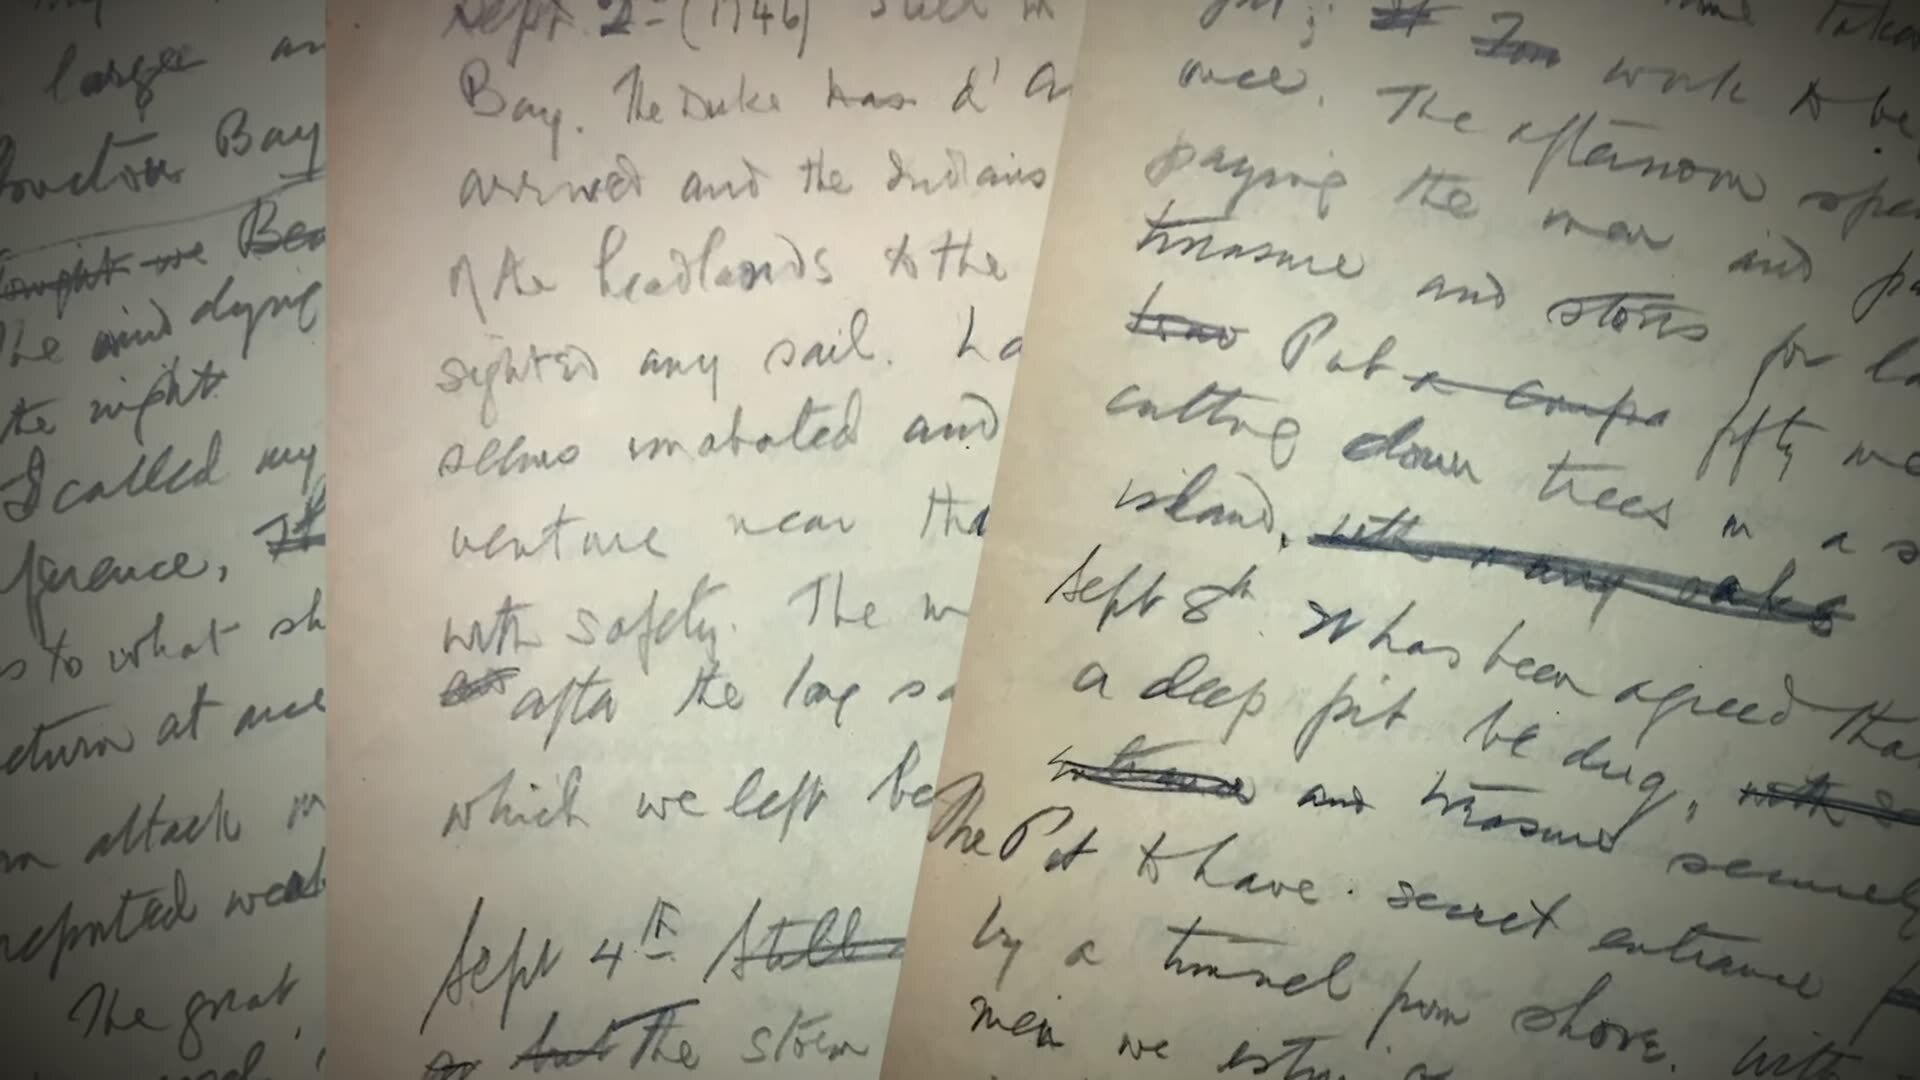 large an
Bay
tonight we Bea
The wind dying
the night
I called my
ference, It
s to what sh
eturn at once
an attack
reported weak
The great
Sept. 2 (1746) still in
Bay. The Duke has d' An
arrived and the Indians
of the headlands to the
sighted any sail.
seems unabated and
venture near tha
with safety. The
after the long
which we left be
Sept 4th Still
but The storm
work to be
once. The afternoon spen
paying the men and
treasure and stores for
Put a Compa fifty me
cutting down trees in a s
island, with many oaks
Sept 8th. It has been agreed tha
a deep pit be dug,
and treasure securely
The Pit to have secret entrance
by a tunnel from shore. With
men we